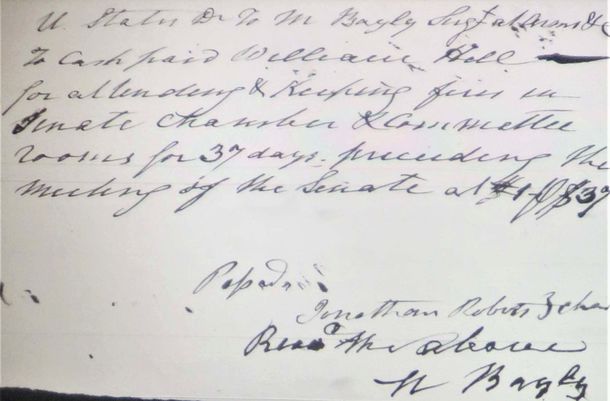 U. States Dr To M Bayly Sergt at Arms &c
To Cash paid William Hill
for attending & Keeping fires in
Senate Chamber & Committee
rooms for 37 days, preceeding the
meeting of the Senate at $1 $37
Passed
Jonathan Roberts
Recd the above
M Bayly